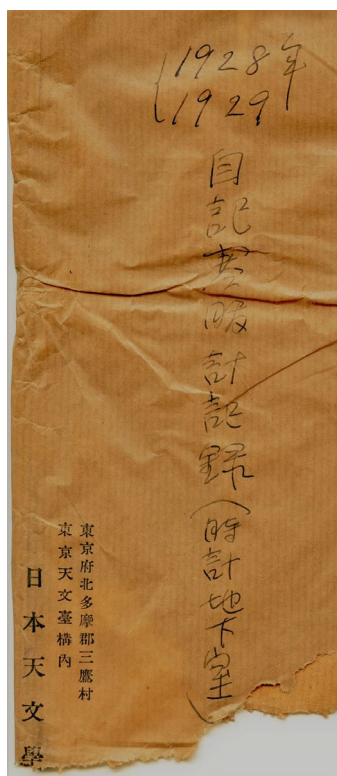 1928年
1929
自記寒暖計記録(時計地下室)
東京府北多摩郡三鷹村
東京天文臺構內
日本天文學